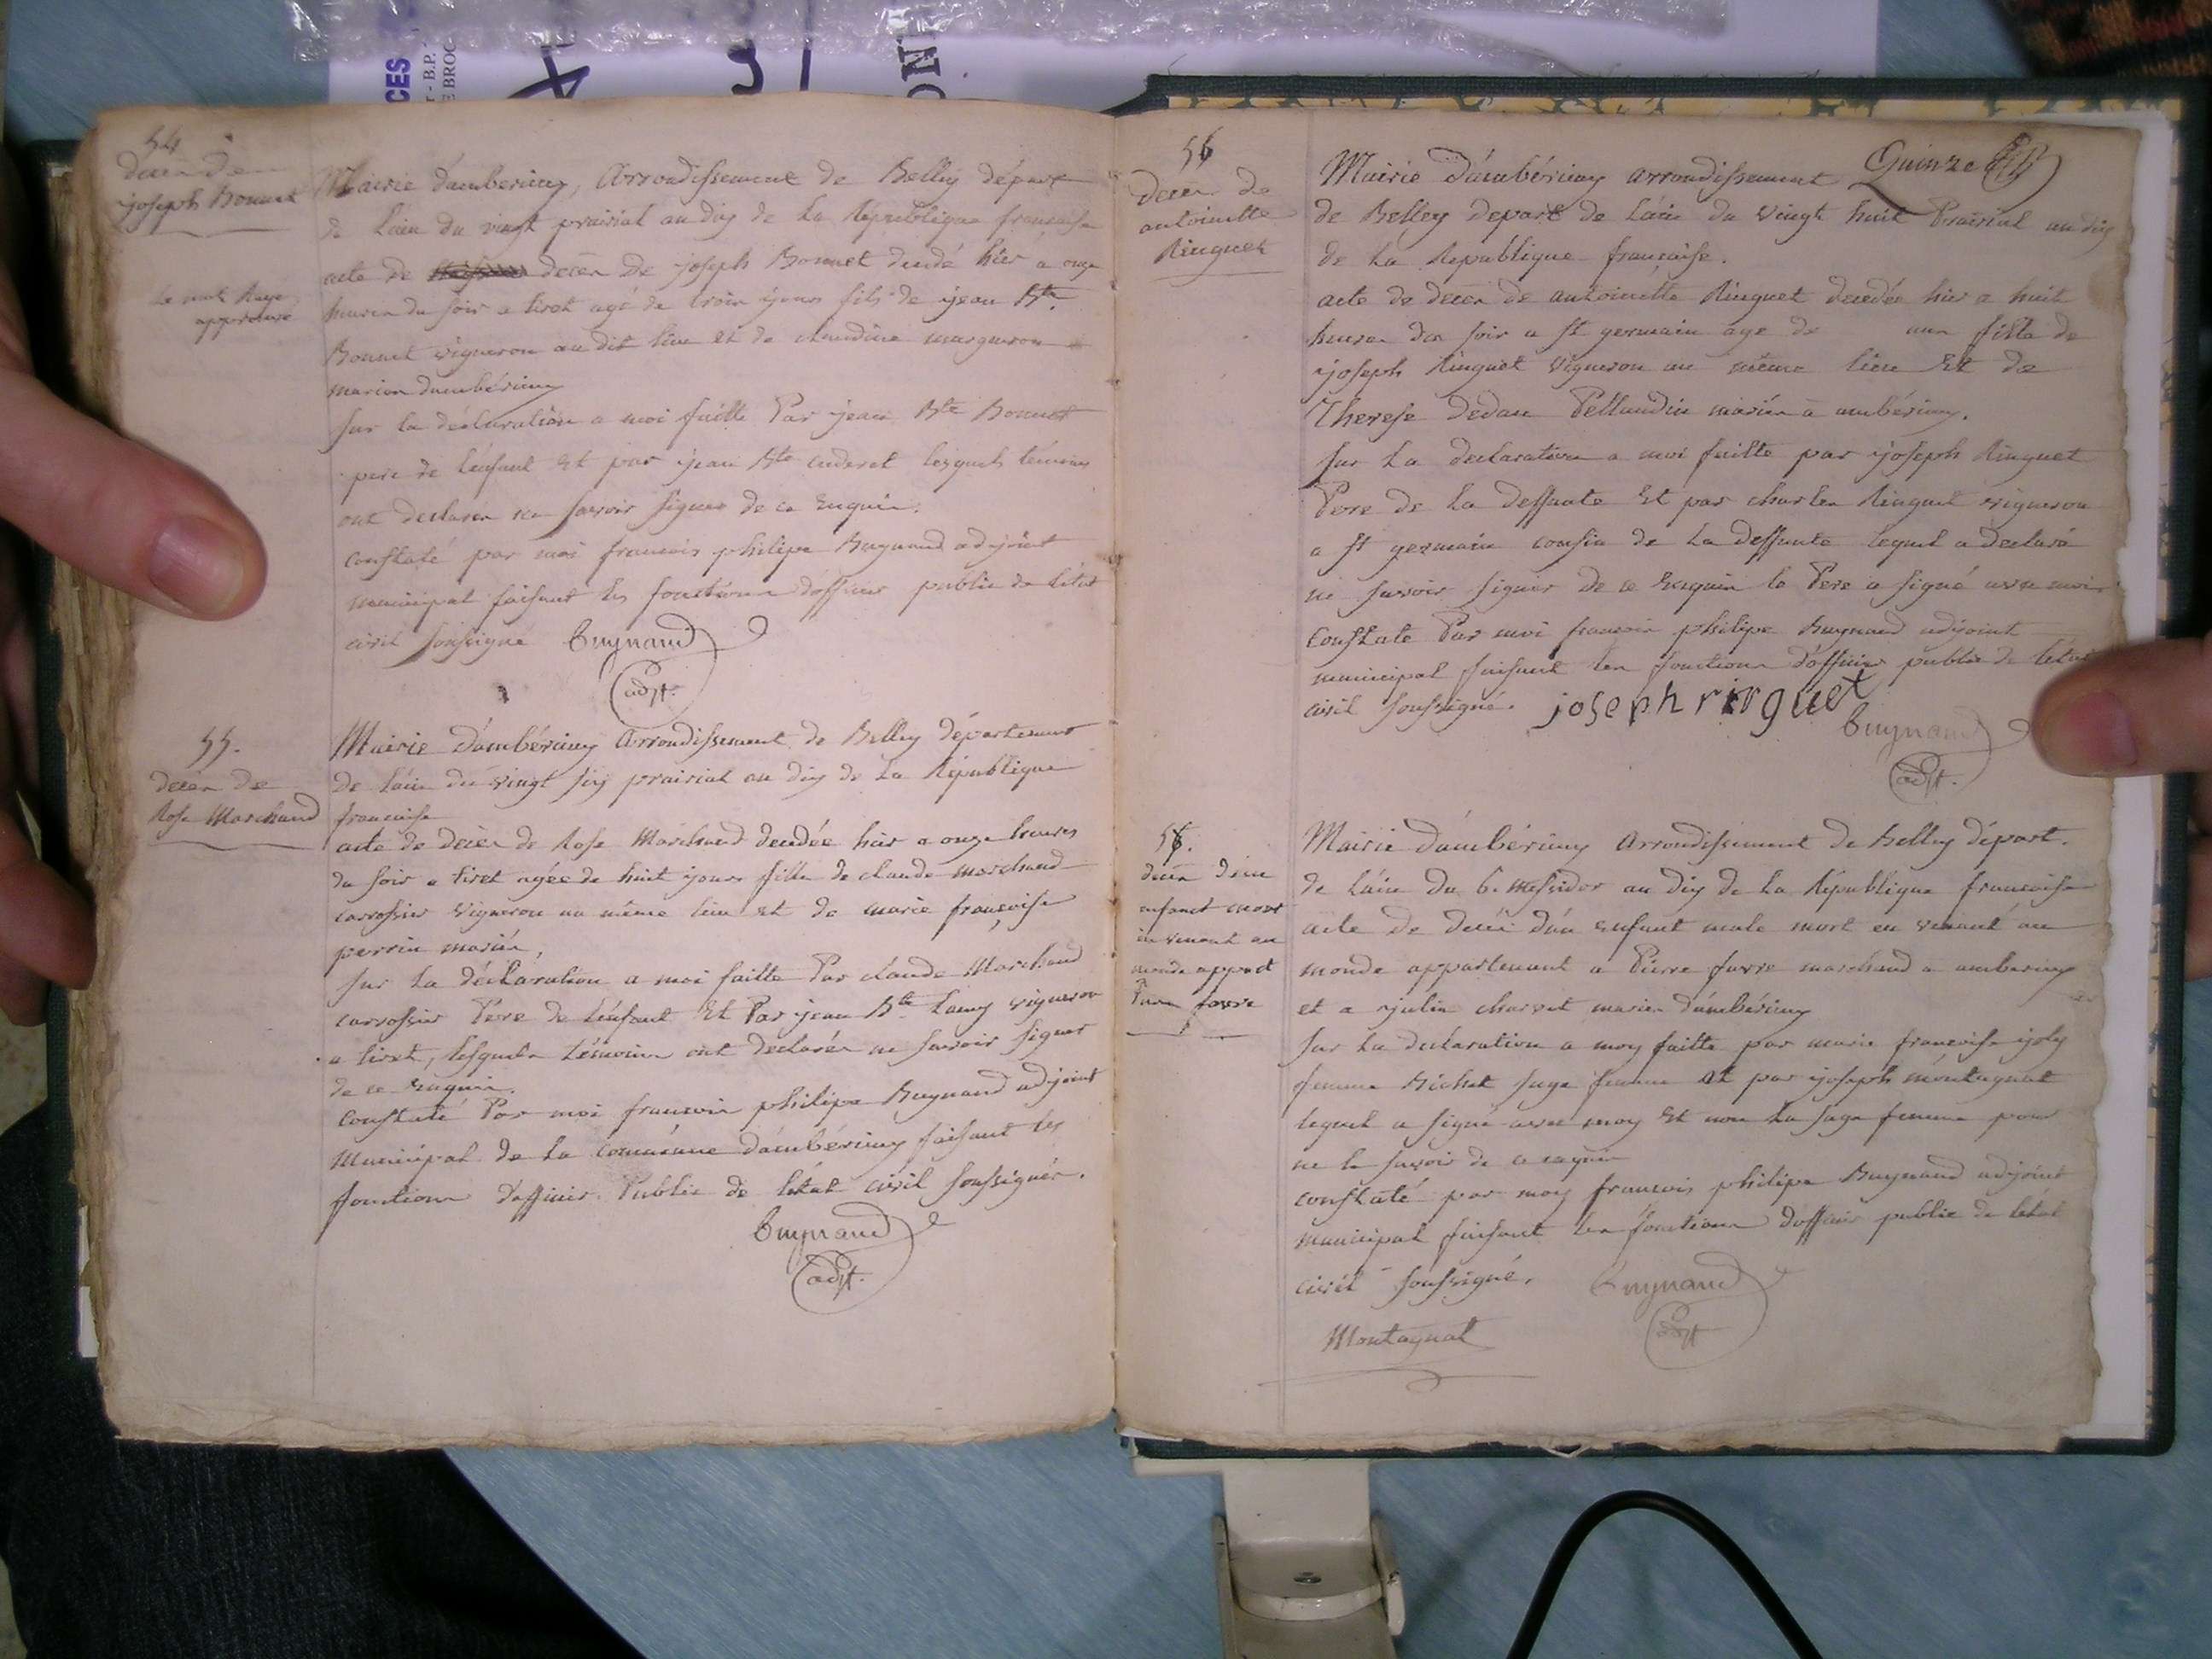 CES
- B.P.
E BROC
ON
54
deces de
joseph Bonnet
le mot Raye
approuvé
Mairie d'amberieux, Arrondissement de Belley départ
de L'ain du vingt prairial an dix de La République francaise
acte de deces de joseph Bonnet decedé hier a onze
heures du soir a tiret agé de trois jours fils de jean Bte
Bonnet vigneron au dit lieu et de claudine margueron
mariés d'ambérieux
sur la déclaration a moi faitte Par jean Bte Bonnet
pere de L'enfant Et par jean Bte cuderet lesquels témoins
ont declarés ne savoir signer de ce Enquis.
constaté par moi francois philipe Buynand adjoint
municipal faisant les fonctions d'officier public de L'état
civil soussigné Buynand
adjt.
55.
deces de
Rose Marchand
Mairie d'ambérieux Arrondissement de Belley département
de L'ain du vingt six prairial an dix de La République
francaise
acte de deces de Rose Marchand decedée hier a onze heures
du soir a tiret agée de huit jours fille de claude marchand
carrossier vigneron au même lieu et de marie françoise
perrin mariés,
sur La déclaration a moi faitte Par claude Marchand
carrossier Pere de L'enfant Et Par jean Bte Lamy vigneron
a tiret, lesquels témoins ont declarés ne savoir signer
de ce Enquis.
constaté Par moi francois philipe Buynand adjoint
Municipal de La commune d'ambérieux faisant les
fonctions d'officier Public de létat civil soussigné.
Buynand
adjt.
Quinze
56
deces de
antoinette
Ringuet
Mairie d'ambérieux arrondissement
de Belley depart de L'ain du vingt huit Prairial an dix
de La Republique francaise.
acte de deces de antoinette Ringuet decedée hier a huit
heures du soir a St germain age de ans fille de
joseph Ringuet vigneron au même lieu Et de
Therese dedan Pellaudin mariés a ambérieux.
sur La declaration a moi faitte par joseph Ringuet
Pere de La deffunte Et par charles Ringuet vigneron
a St germain cousin de La deffunte lequel a declaré
ne savoir signer de ce Enquis le Pere a signé avec moi
constaté Par moi francois philipe Buynand adjoint
municipal faisant les fonctions d'officier public de létat
civil soussigné. joseph ringuet
Buynand
adjt.
deces d'un
enfant mort
en venant au
monde appart
a Pierre favre
Mairie d'ambérieux Arrondissement de Belley départ.
de L'ain du 6. messidor an dix de La République francaise
acte de deces d'un enfant male mort en venant au
monde appartenant a Pierre favre marchand a amberieux
et a julie charvet mariés d'ambérieux
sur La declaration a moy faitte par marie francoise joly
femme Bichet sage femme et par joseph montagnat
lequel a signé avec moy Et non La sage femme pour
ne le savoir de ce enquis
constaté par moy francois philipe Buynand adjoint
municipal faisant les fonctions d'officier public de létat
civil soussigné. Buynand
adjt
Montagnat